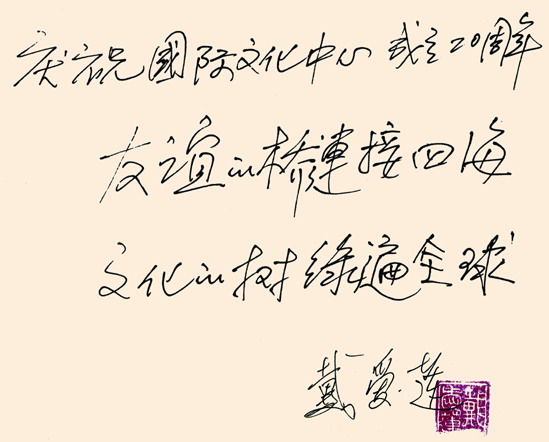 庆祝國际文化中心成立20周年
友谊的桥連接四海
文化的树绿遍全球
戴爱莲